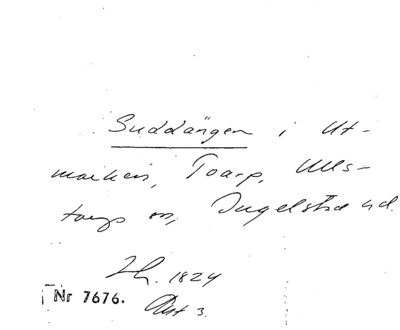 Suddängen i Ut-
marken, Toarp, Ulls-
torps sn, Ingelstad hd.
Lh. 1824
Akt 3.
Nr 7676.